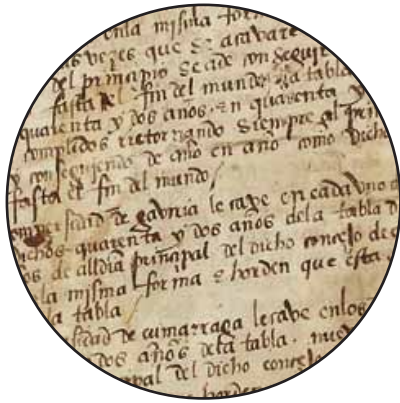 enla misma for
as vezes que se acavare
del principio se a de conseguir
fasta el fin del mundo la tabla
quarenta y dos años en quarenta y
complidos retornando siempre al prin
y consiguiendo de año en año como dicho
fasta el fin del mundo
de gavria le cave en cada vno
dichos quarenta y dos años de la tabla d
os de alldia principal del dicho concejo de
la misma forma e horden que esta
la tabla
de cumarraga le cave enlos
dos años dela tabla nue
pal del dicho concejo
horden